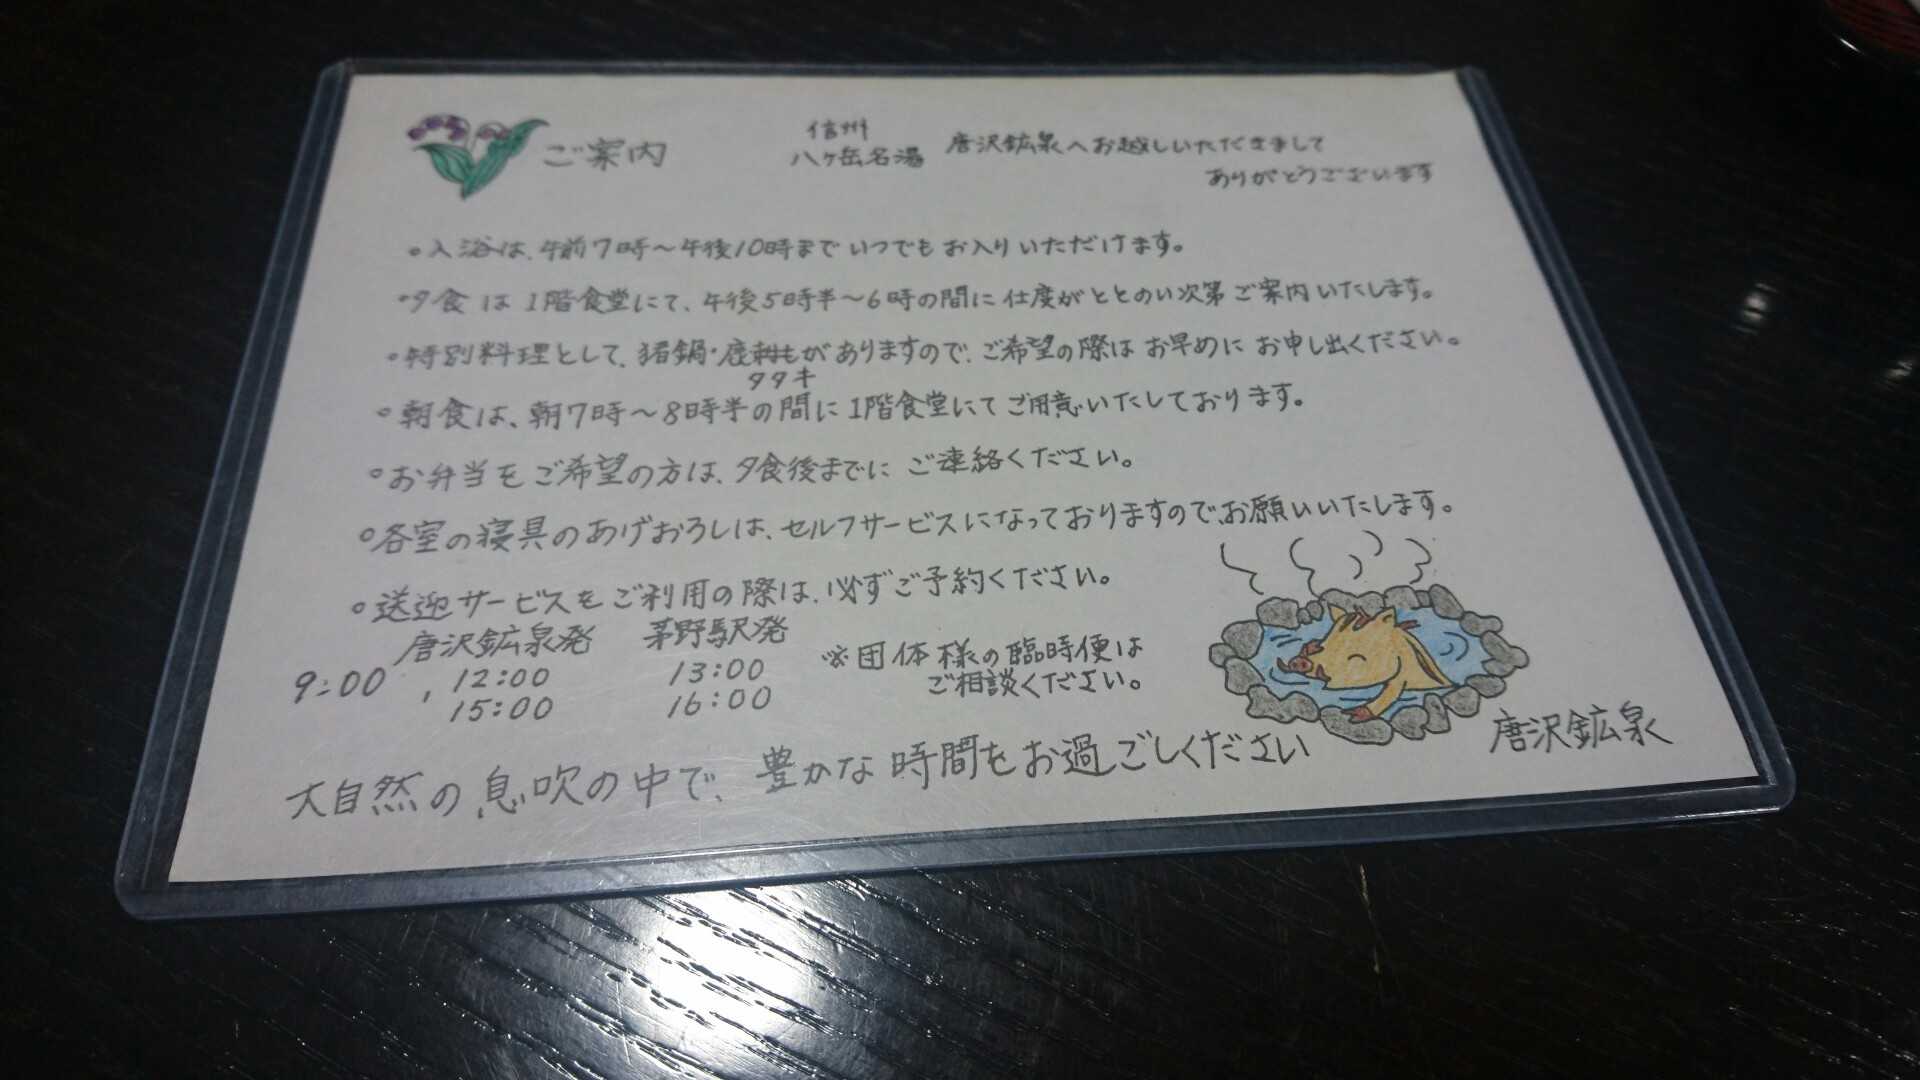 ご案内
信州
八ヶ岳名湯
唐沢鉱泉へお越しいただきまして
ありがとうございます
。入浴は、午前7時～午後10時までいつでもお入りいただけます。
。夕食は1階食堂にて、午後5時半～6時の間に仕度がととのい次第ご案内いたします。
。特別料理として、猪鍋・鹿刺もがありますので、ご希望の際はお早めにお申し出ください。
タタキ
。朝食は、朝7時～8時半の間に1階食堂にてご用意いたしております。
。お弁当をご希望の方は、夕食後までにご連絡ください。
。各室の寝具のあげおろしは、セルフサービスになっておりますので、お願いいたします。
。送迎サービスをご利用の際は、必ずご予約ください。
唐沢鉱泉発 茅野駅発
9:00, 12:00 13:00
15:00 16:00
※団体様の臨時便は
ご相談ください。
大自然の息吹の中で、豊かな時間をお過ごしください
唐沢鉱泉